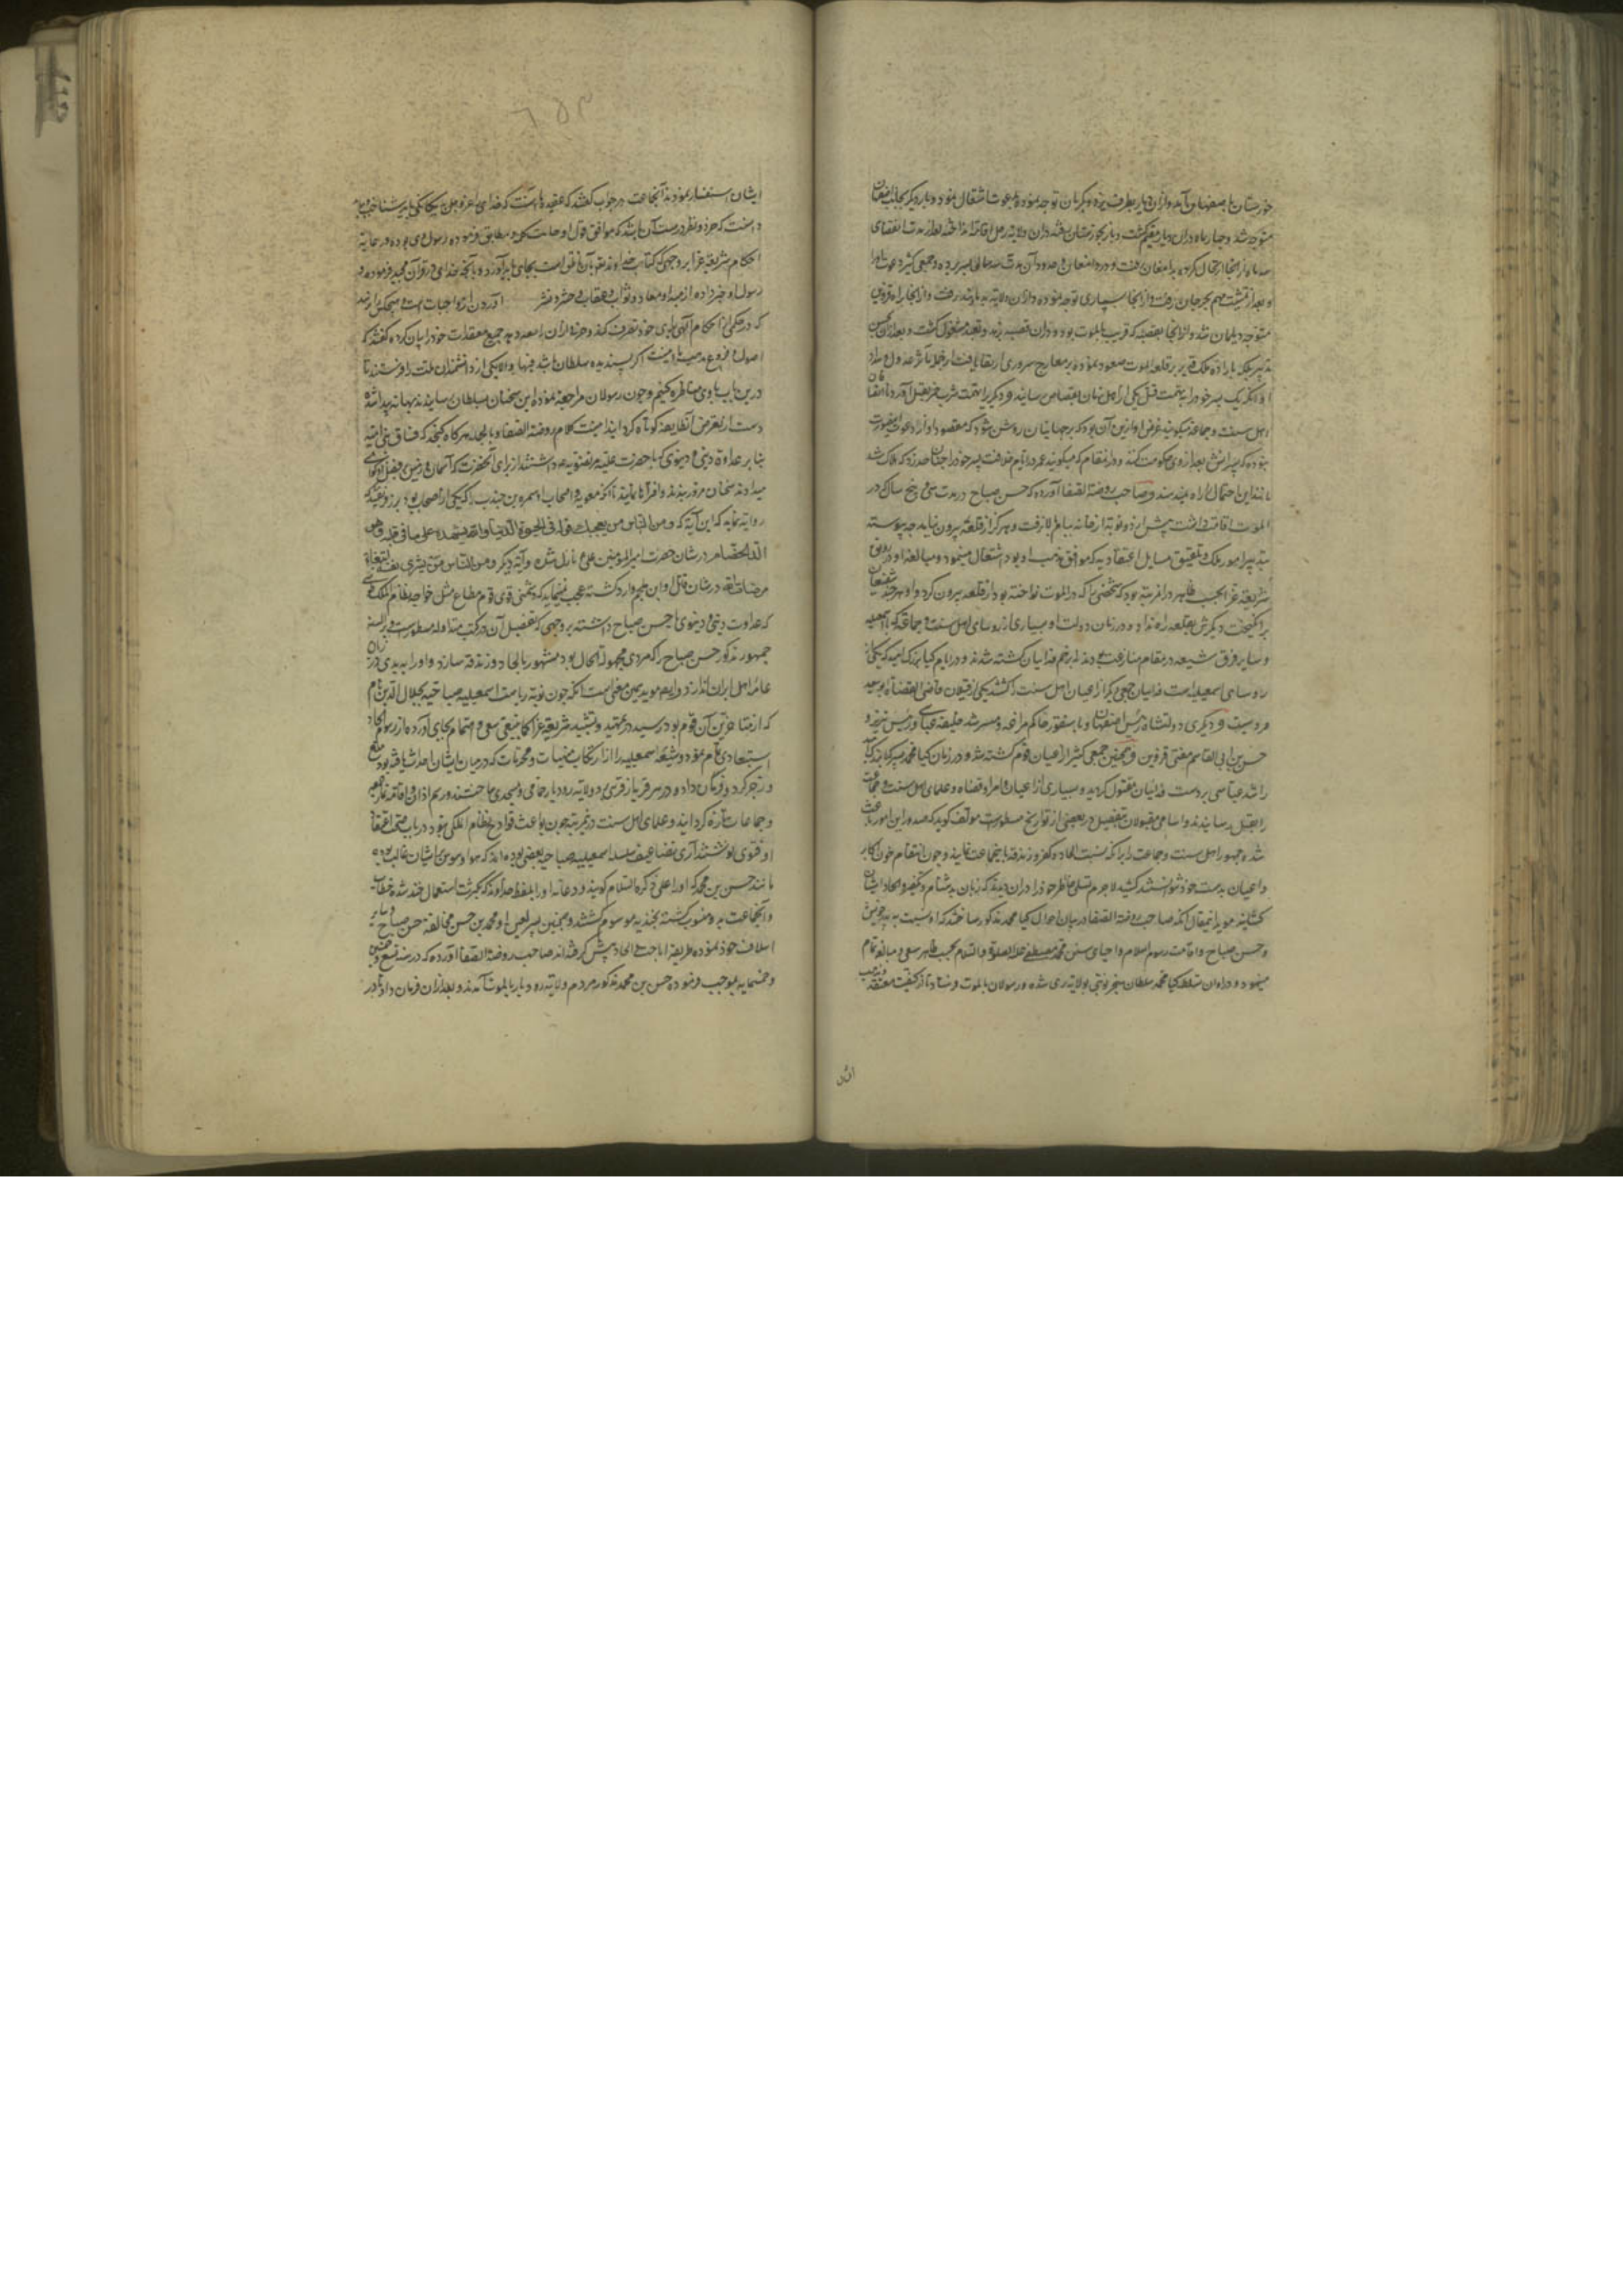 خوزستان باصفهان آمد و ازان دیار بطرف یزد و کرمان توجه نموده بدعوت اشتغال نمود و بار دیگر بجانب اصفهان
متوجه شد و چهار ماه دران دیار مقیم گشت و بار بخوزستان
سه ماه از آنجا ارتحال کرده بدامغان رفت و در دامغان و حدود آن مدت سه سال بسر برده و جمعی کثیر دعوت او را
و بعد از تمشیت مهم بجرجان رفت و از آنجا بساری توجه نموده و ازان ولایت بدماوند رفت و از آنجا براه قزوین
متوجه دیلمان شد و از آنجا بقصبه که قریب بالموت بود و دران قصبه بزهد و تعبد مشغول گشت و بعد ازان بحسن
تدبیر بلکه باراده ملک قدیر بر قلعه الموت صعود نموده بر معارج سروری ارتقا یافت
و آنکه یک پسر خود را بتهمت قتل یکی از اهل زمان بقصاص رسانید و دیگر را بتهمت شرب خمر بقتل آورد
اهل سنت و جماعة میگویند غرض او ازین آن بود که بر جهانیان روشن شود که مقصود او از دعوت
نبوده که پسرانش بعد از وی حکومت کنند و در انتقام که میگویند عمر در ایام خلافت پسر خود را چنان حد زد که هلاک شد
مانند این احتمال را راه نمیدهند و صاحب روضة الصفا آورده که حسن صباح در مدت سی و پنج سال که در
الموت اقامت داشت پیش از دو نوبت از خانه ببام بالا نرفت و هرگز از قلعه بیرون نیامد چه پیوسته
بتدبیر امور ملک و تلفیق مسایل اعتقادیه که موافق مذهب او بود اشتغال مینمود و مبالغه او در رونق
شریعت غرا بحسب ظاهر در مرتبه بود که شخصی را که در الموت نی نواخته بود از قلعه بیرون کرد و او هر چند شفیعان
برانگیخت دیگرش بقلعه راه نداد و در زمان دولت او بسیاری از رؤسای اهل سنت و جماعة که با اسمعیلیه
و سایر فرق شیعه در مقام منازعت بودند بزخم فداییان کشته شدند و در ایام کیا بزرگ امید که یکی از
رؤسای اسمعیلیه است فداییان جمعی دیگر از اعیان اهل سنت را کشتند یکی از قتیلان قاضی القضاة ابو سعید
هرویست و دیگری دولتشاه رئیس اصفهان و باز سنقور حاکم مراغه و مسترشد خلیفه عباسی و رئیس تبریز و
حسن بن ابی القاسم مفتی قزوین و همچنین جمعی کثیر از اعیان قوم کشته شد و در زمان کیا محمد پسر کیا بزرگ امید
راشد عباسی بر دست فداییان مقتول گردید و بسیاری از اعیان و امرا و قضاة و علمای اهل سنت و جماعت
را بقتل رسانیدند و اسامی مقتولان بتفصیل در بعضی از تواریخ مسطورست مؤلف گوید که صدور این امور باعث
شده جمهور اهل سنت و جماعت را بر آنکه نسبت الحاد و کفر و زندقه باین جماعت نمایند و چون انتقام خون اکابر
و اعیان بدست خود نتوانستند کشید لاجرم تسلی خاطر خود را دران دیدند که زبان بدشنام و تکفیر و الحاد ایشان
گشایند مؤید اینمقال آنکه صاحب روضة الصفا در بیان احوال کیا محمد مذکور ساخته که او نسبت به پدر خویش
و حسن صباح و اقامت رسوم اسلام و احیای سنن محمد مصطفی علیه الصلوة والسلام بحسب ظاهر سعی و مبالغه تمام
مینمود و در اوان تسلط کیا محمد سلطان سنجر نوبتی بولایت ری شده و رسولان بالموت فرستاد تا از کیفیت معتقد و مذهب
ایشان
ایشان استفسار نمودند آنجماعت در جواب گفتند که عقیده ما آنست که خدای را عز و جل بیگانگی باید شناخت و باید
دانست که خرد و نظر درست آن باشد که موافق قول او جلت کلمته و مطابق فرموده رسول وی بود و در حمایت
احکام شریعت غرا بر وجهی که کتاب خداوند تعالی بآن ناطق است بجای باید آورد و بآنچه خدای در قرآن مجید فرموده و
رسول او خبر داده از مبدا و معاد و ثواب و عقاب و حشر و نشر آوردن از واجبات است و هیچکس را نرسد
که در حکمی از احکام الهی برای خود تصرف کند و حرفی ازان و جمیع معتقدات خود را بیان کرده گفتند که
اصول و فروع مذهب ما اینست اگر پسندیده سلطان باشد فبها و الا یکی از دانشمندان ملت را فرستند تا
درین باب با وی مناظره کنیم و چون رسولان مراجعة نموده این سخنان بسلطان رسانیدند
دست از تعرض آنطایفه کوتاه گردانید اینست کلام روضة الصفا و بالجمله هر گاه فساق بنی امیه
بنابر عداوة دینی و دنیوی که با حضرت علیه مرتضویه داشتند از برای آنحضرت که آسمان و زمین بر فضل او گواهی
میدادند سخنان مزور بندند و افترا نمایند تا آنکه معویه و اصحاب او سمره بن جندب را که یکی از اصحاب بود
روایت نماید که این آیه که ومن الناس من یعجبك قوله فی الحیوة الدنیا ویشهد الله علی ما فی قلبه وهو
الد الخصام در شان حضرت امیر المؤمنین علی ع نازل شده و آیة دیگر ومن الناس من یشری نفسه ابتغاء
مرضات الله در شان قاتل او ابن ملجم وارد گشته چه عجب مینماید که دشمنی قوی قوم مطاع مثل خواجه نظام الملک طوسی
که عداوت دینی و دنیوی با حسن صباح داشته بر وجهی که تفصیل آن در کتب متداوله مسطورست و بر السنه
جمهور مذکور حسن صباح را که مردی مجهول الحال بود مشهور بالحاد و زندقه سازد و او را ببدی در زبان
عامه اهل ایران اندازد و ایضا مؤید همین معنی است آنکه چون نوبت ریاست اسمعیلیه صباحیه بجلال الدین نام
که از متاخرین آن قوم بود رسید در تمهید و تشیید شریعت غرا کما ینبغی سعی و اهتمام بجای آورده از رسوم الحاد
استبعادی تمام نمود و شیعه اسمعیلیه را از ارتکاب منهیات و محرمات که در میان ایشان احداث یافته بود منع
و زجر کرد و فرمان داد و در هر قریه از قرای ولایت رودبار حمامی و مسجدی ساختند و رسم اذان و اقامة نماز جمعه
و جماعات تازه گردانید و علمای اهل سنت در مرتبه چون بواعث قوادح نظام الملکی نبود در باب صحت اعتقاد
او فتوی نوشتند آری تضاعیف سلسله اسمعیلیه صباحیه بعضی بوده‌اند که هوا و هوس بر ایشان غالب بوده
مانند حسن بن محمد که او را علی ذکره السلام گویند و در خانه او را بلفظ خداوند که بکثرت استعمال خند شده خطاب
و آنجماعت بدو منسوب گشته بخندیه موسوم گشتند و همچنین پسر لعین او محمد بن حسن مخالفة حسن صباح و سایر
اسلاف خود نموده طریقه اباحت و الحاد پیش گرفته‌اند صاحب روضة الصفا آورده که در سنه تسع و خمسین
و خمسمایه بموجب فرموده حسن بن محمد مذکور مردم ولایت رودبار بالموت آمدند و بعد ازان فرمان داد تا در